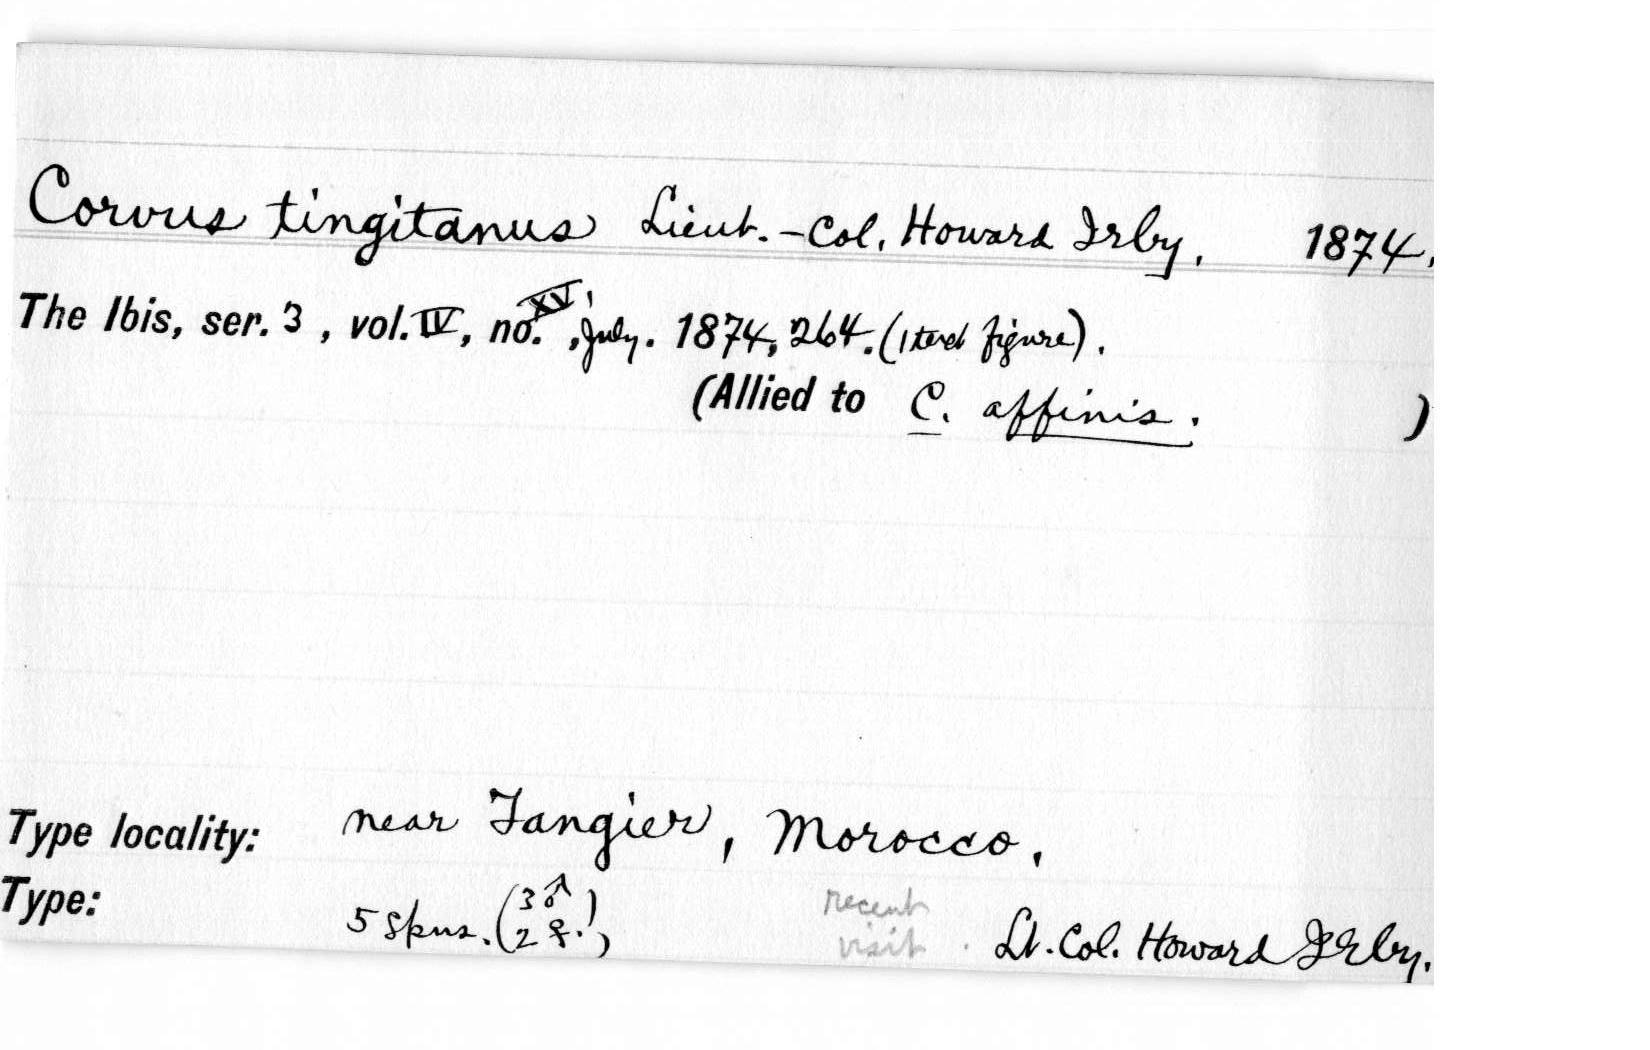 Corvus tingitanus Lieut.-Col. Howard Irby. 1874.
The Ibis, ser. 3, vol. IV, no. XV, July. 1874, 264. (1 text figure).
(Allied to C. affinis. )
Type locality: near Tangier, Morocco.
Type: 5 spns. (3♂ 2♀.), recent visit. Lt. Col. Howard Irby.